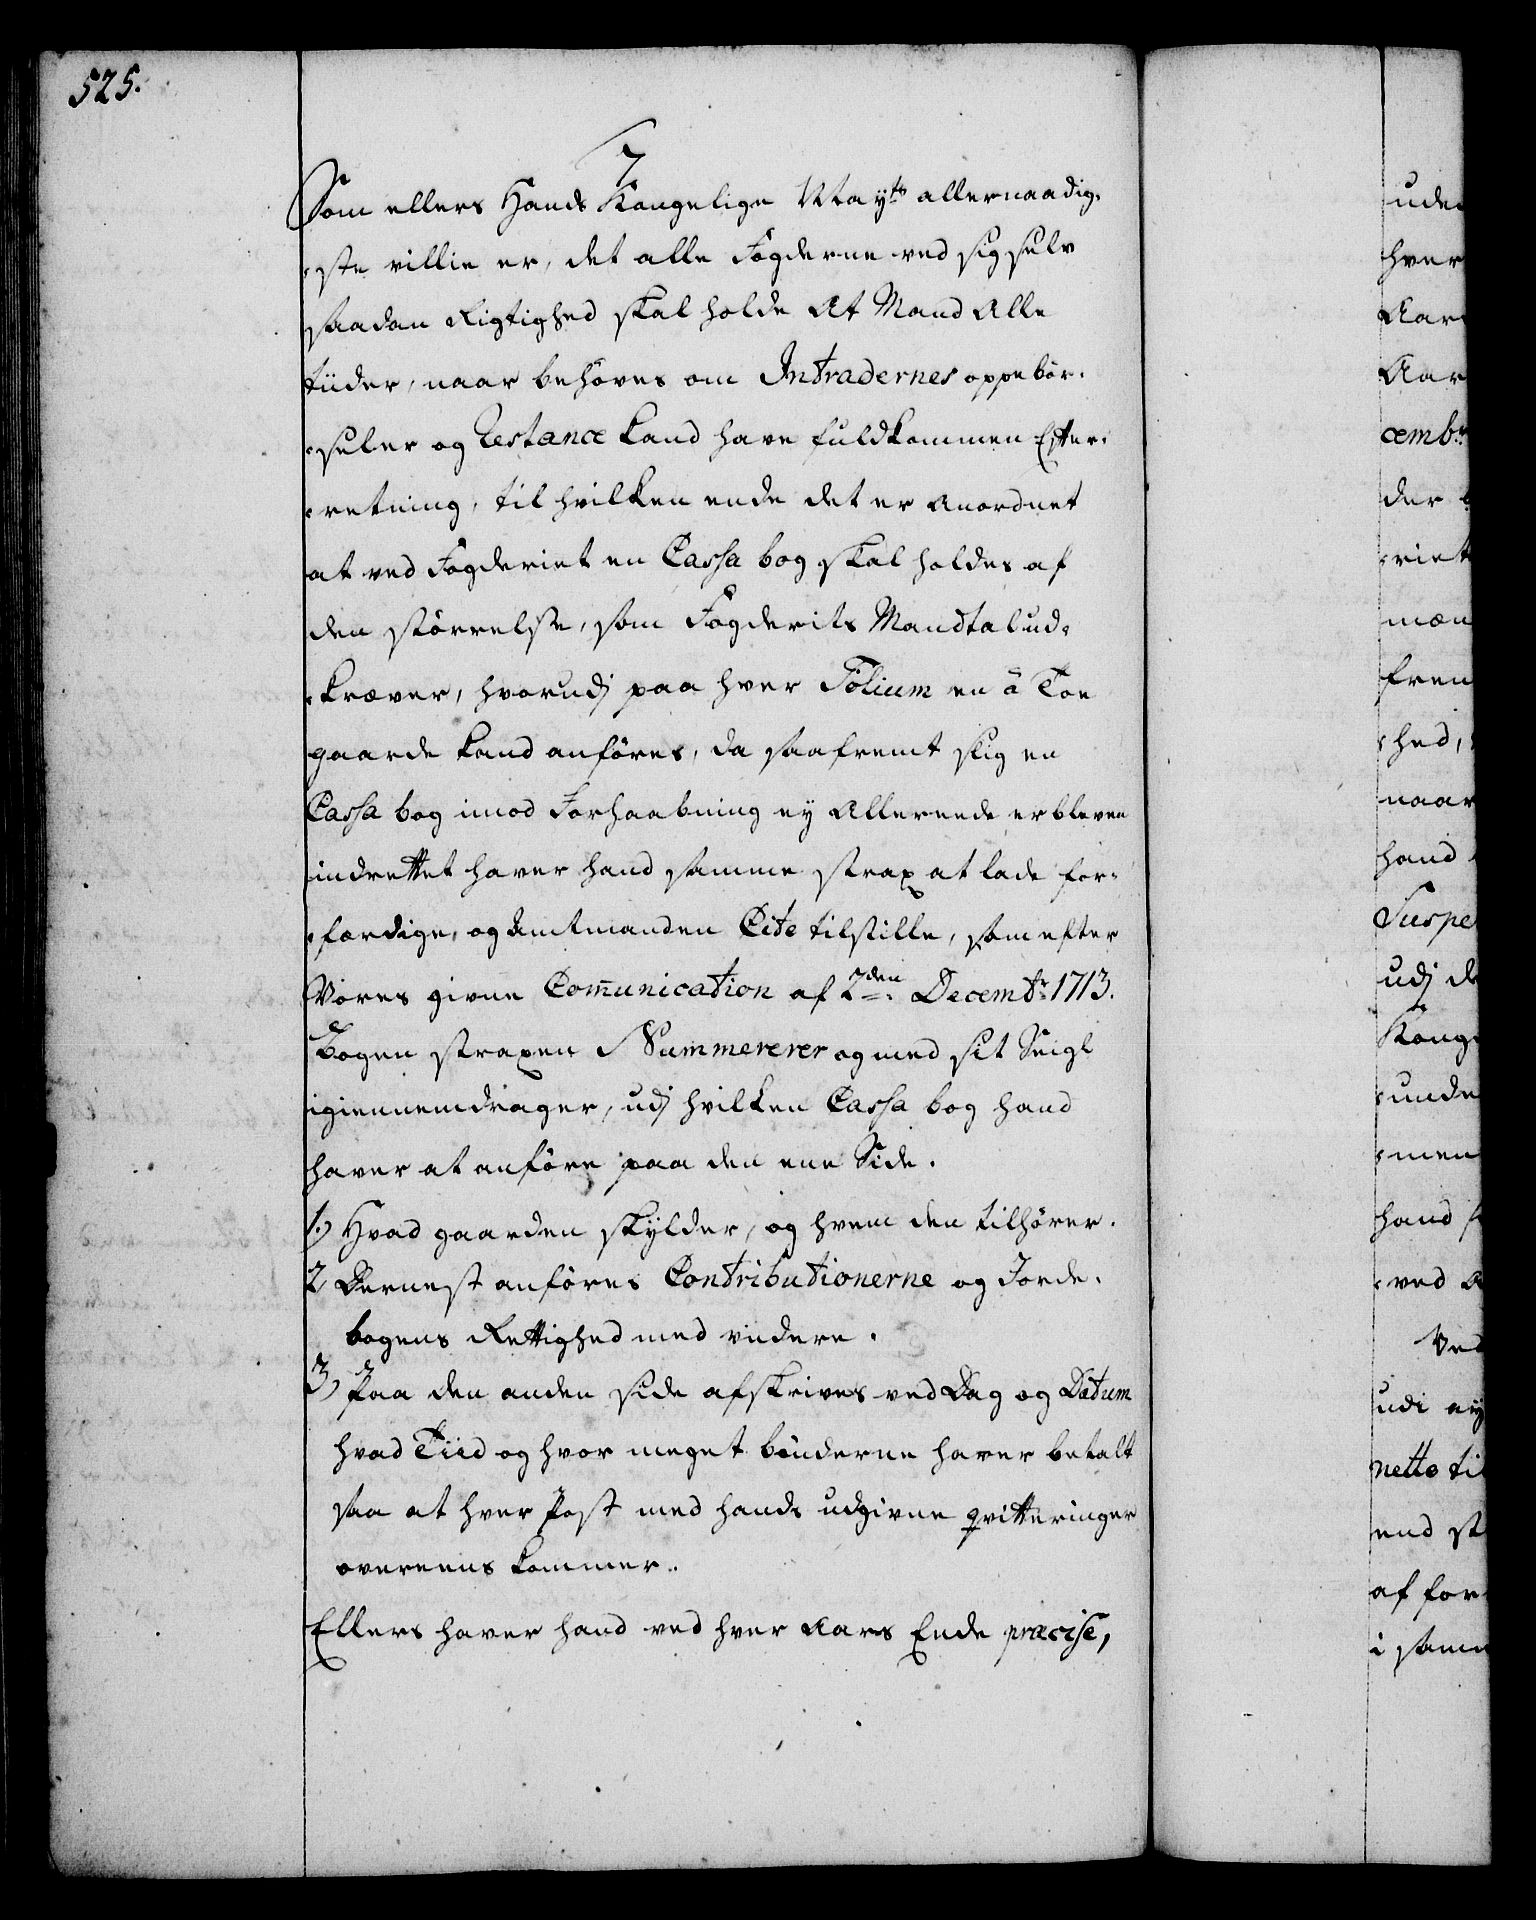 525.
7
Som ellers Hands Kongelige May.ts allernaadig-
-ste villie er, det alle Fogderne ved sig selv
saadan Rigtighed skal holde At Mand Alle
tiider, naar behöves om Intradernes oppebör-
-seler og Restance kand have fuldkommen Efter-
-retning, til hvilken ende det er Anordnet
at ved Fogderiet en Cassa bog skal holdes af
den störrelse, som Fogderits Mandtal ud-
-kræver, hvorudj paa hver Folium en à Toe
gaarde kand anföres, da saafremt slig en
Cassa bog imod Forhaabning ey Allereede er bleven
indrettet haver hand samme strax at lade for-
-færdige, og Amtmanden Cito tilstille, som efter
Vores givne Com̅unication af 2den Decembr: 1713.
Bogen straxen Nummererer og med sit Seigl
igiennemdrager, udj hvilken Cassa bog hand
haver at anföre paa den ene Side.
1.) Hvad gaarden skylder, og hvem den tilhörer.
2 Dernest anföres Contributionerne og Jorde-
bogens Rettighed med viidere.
3, Paa den anden side afskrives ved Dag og Datum
hvad Tiid og hvor meget bönderne haver betalt
saa at hver Post med hands udgivne qvitteringer
overeens kommer.
Ellers haver hand ved hver Aars Ende præcise,
hver
Aar
cembr
der
-riet
fren
-hed,
naar
hand
Suspe
udj de
Kong
-unde
-men
hand
-ved
Ved
udi ey
netto til
end st
af for
i samm